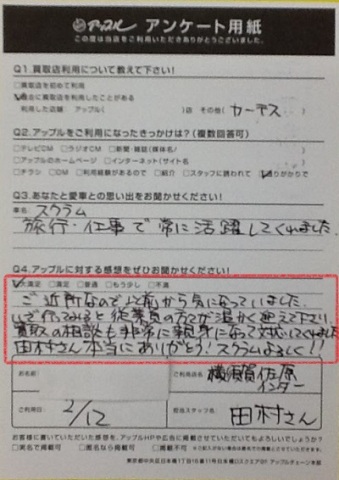 アップル アンケート用紙
この度は当店をご利用いただきありがとうございました。
Q1.買取店利用について教えて下さい!
□買取店を初めて利用
過去に買取店を利用したことがある
利用した店舗 アップル( )店 その他( カーチス )
Q2.アップルをご利用になったきっかけは?(複数回答可)
□テレビCM □ラジオCM □新聞・雑誌(媒体名/ )
□アップルのホームページ □インターネット(サイト名 )
□チラシ □DM □利用経験があるので □紹介 □スタッフに誘われて ☑通りがかりで
Q3.あなたと愛車との思い出をお聞かせください!
車名: スクラム
旅行・仕事で常に活躍してくれました
Q4.アップルに対する感想をぜひお聞かせください!
☑大満足 □満足 □普通 □もう少し □不満
ご近所なので以前から気になっていました。
いざ行ってみると従業員の方々が温かく迎えて下さり、
買取の相談も非常に親身になって対応してくれました
田村さん本当にありがとう!スクラムよろしく!!
お名前
ご利用店名 横須賀佐原インター
ご利用日 2/12
担当スタッフ名 田村さん
お客様に書いていただいた感想を、アップルHPや広告に掲載させていただいてもよろしいでしょうか?
□実名で掲載可 □匿名なら掲載可 □掲載不可